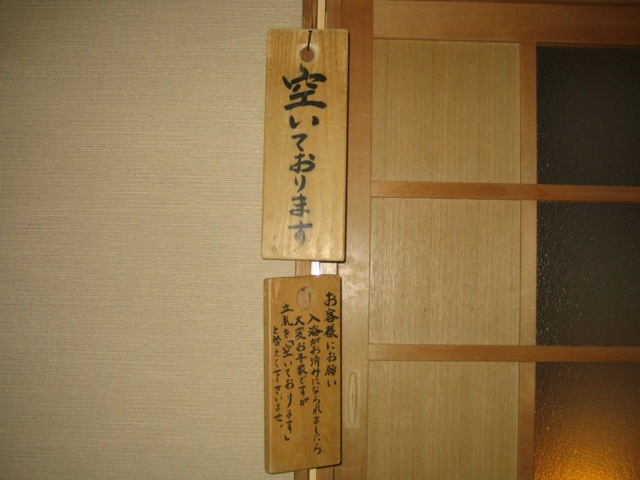 空いております
お客様にお願い
入浴がお済みになられましたら
大変お手数ですが
立札を「空いております」
と替えて下さいませ。